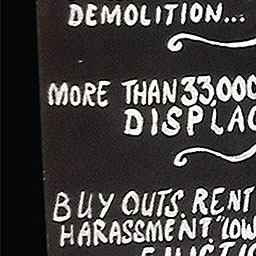 DEMOLITION...
MORE THAN 33,000
DISPLAC
BUY OUTS. RENT
HARASSMENT. "LOW